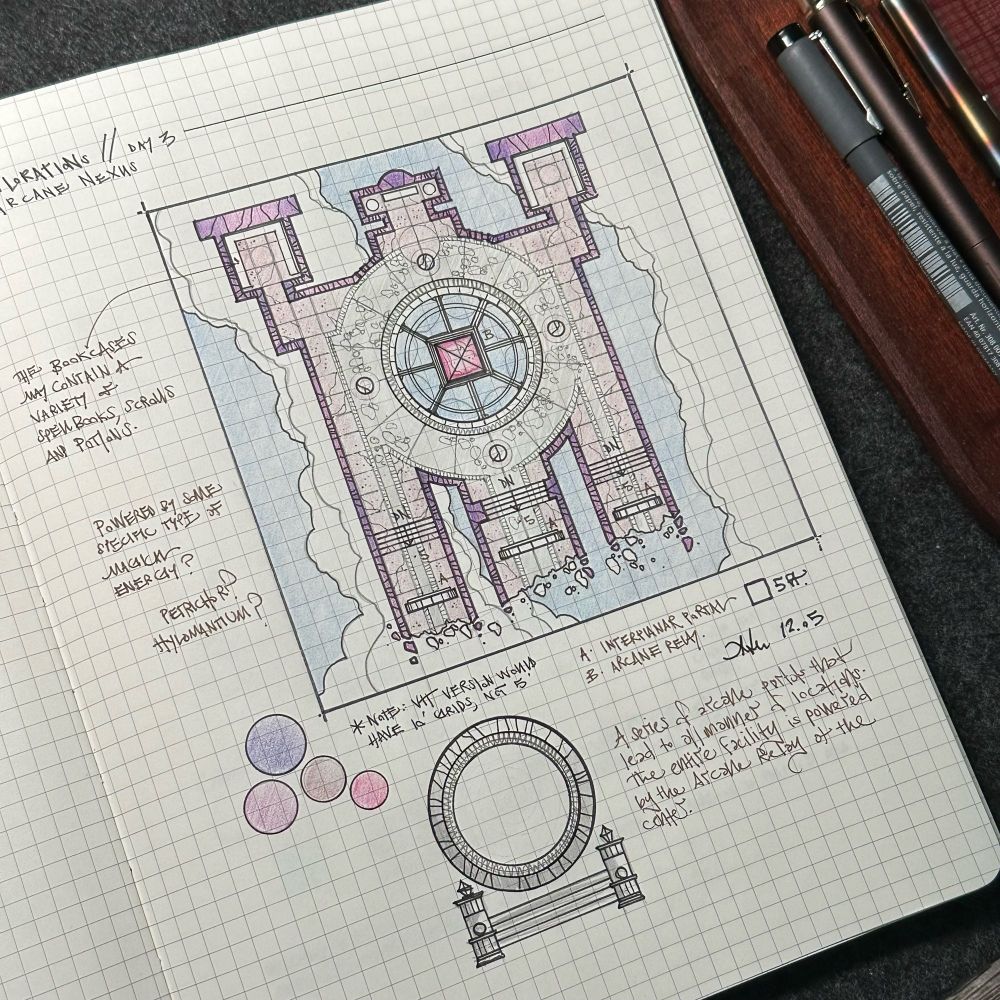 LORATIONS // DAY 3
ARCANE NEXUS
THE BOOKCASES
MAY CONTAIN A
VARIETY OF
SPELLBOOKS, SCROLLS
AND POTIONS.
POWERED BY SOME
SPECIFIC TYPE OF
MAGICAL
ENERGY?
PETRICHOR?
HYLOMANTIUM?
B
DN
DN
DN
5
5
5
A
A
A
5 FT.
A. INTERPLANAR PORTAL
B. ARCANE RELAY.
12.05
* NOTE: VTT VERSION WOULD
HAVE 10' GRIDS, NOT 5'
A series of arcane portals that
lead to all manner of locations.
The entire facility is powered
by the Arcane Relay at the
center.
sobre papel resistente a la